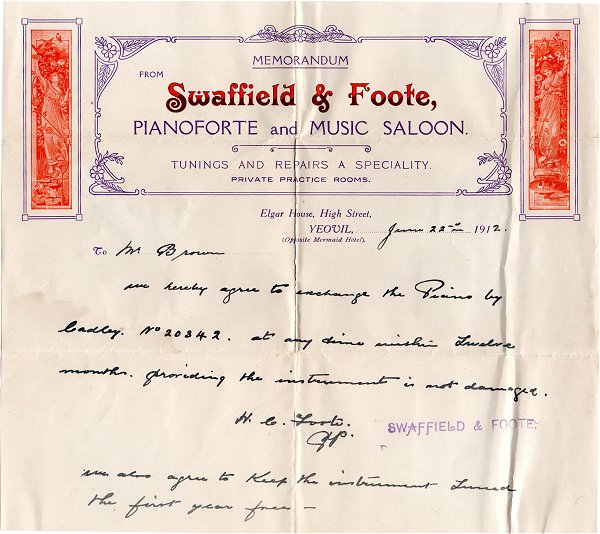 MEMORANDUM
FROM
Swaffield & Foote,
PIANOFORTE and MUSIC SALOON.
TUNINGS AND REPAIRS A SPECIALITY.
PRIVATE PRACTICE ROOMS.
Elgar House, High Street,
YEOVIL, June 22nd 1912.
(Opposite Mermaid Hotel).
To Mr Brown
we hereby agree to exchange the Piano by
Cadley. No 20342. at any time within Twelve
months. providing the instrument is not damaged.
H. C. Foote.
SWAFFIELD & FOOTE.
we also agree to keep the instrument Tuned
the first year free –